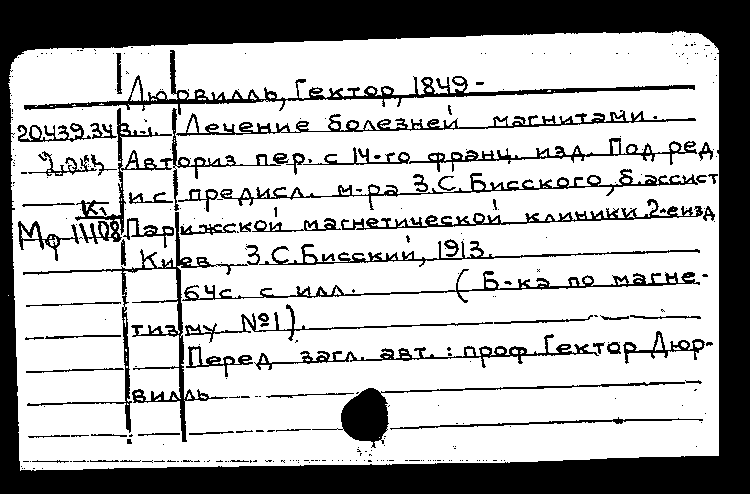 Дюрвилль, Гектор, 1849-
Лечение болезней магнитами.
Авториз. пер. с 14-го франц. изд. Под ред.
и с предисл. м-ра З.С.Бисского, б.ассист
К1
Мф-11108 Парижской магнетической клиники.2-еизд
Киев, З.С.Бисский, 1913.
64с. с илл. (Б-ка по магне-
тизму №1).
Перед загл. авт.: проф.Гектор Дюр-
вилль